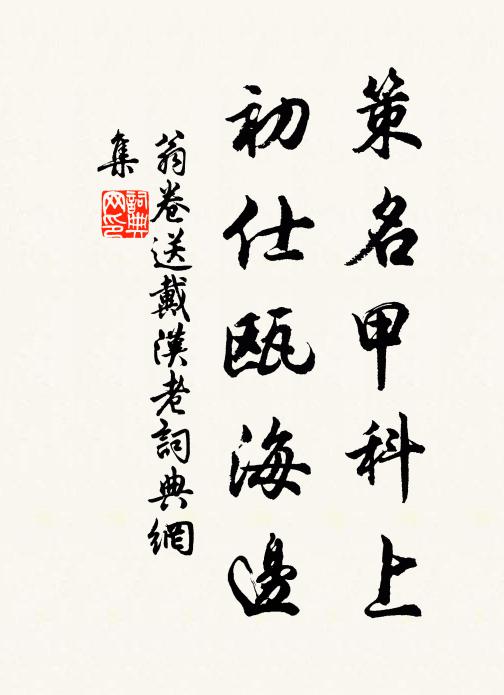 策名甲科上
初仕甌海邊
翁卷送戴漢老詞典網
集
詞典
网印